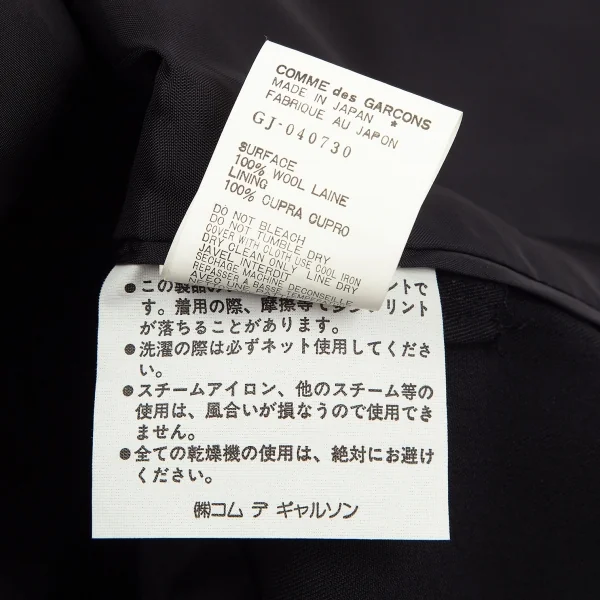 COMME des GARCONS
MADE IN JAPAN *
FABRIQUE AU JAPON
GJ-040730
SURFACE
100% WOOL LAINE
LINING
100% CUPRA CUPRO
DO NOT BLEACH
DO NOT TUMBLE DRY
COVER WITH CLOTH USE COOL IRON
DRY CLEAN ONLY LINE DRY
JAVEL INTERDIT
SECHAGE MACHINE DECONSEILLE
REPASSER A BASSE TEMP
AVEC UNE
●この製品 ントで
す。着用の際、摩擦等で リント
が落ちることがあります。
●洗濯の際は必ずネット使用してくださ
い。
●スチームアイロン、他のスチーム等の
使用は、風合いが損なうので使用でき
ません。
●全ての乾燥機の使用は、絶対にお避け
ください。
㈱コム デ ギャルソン